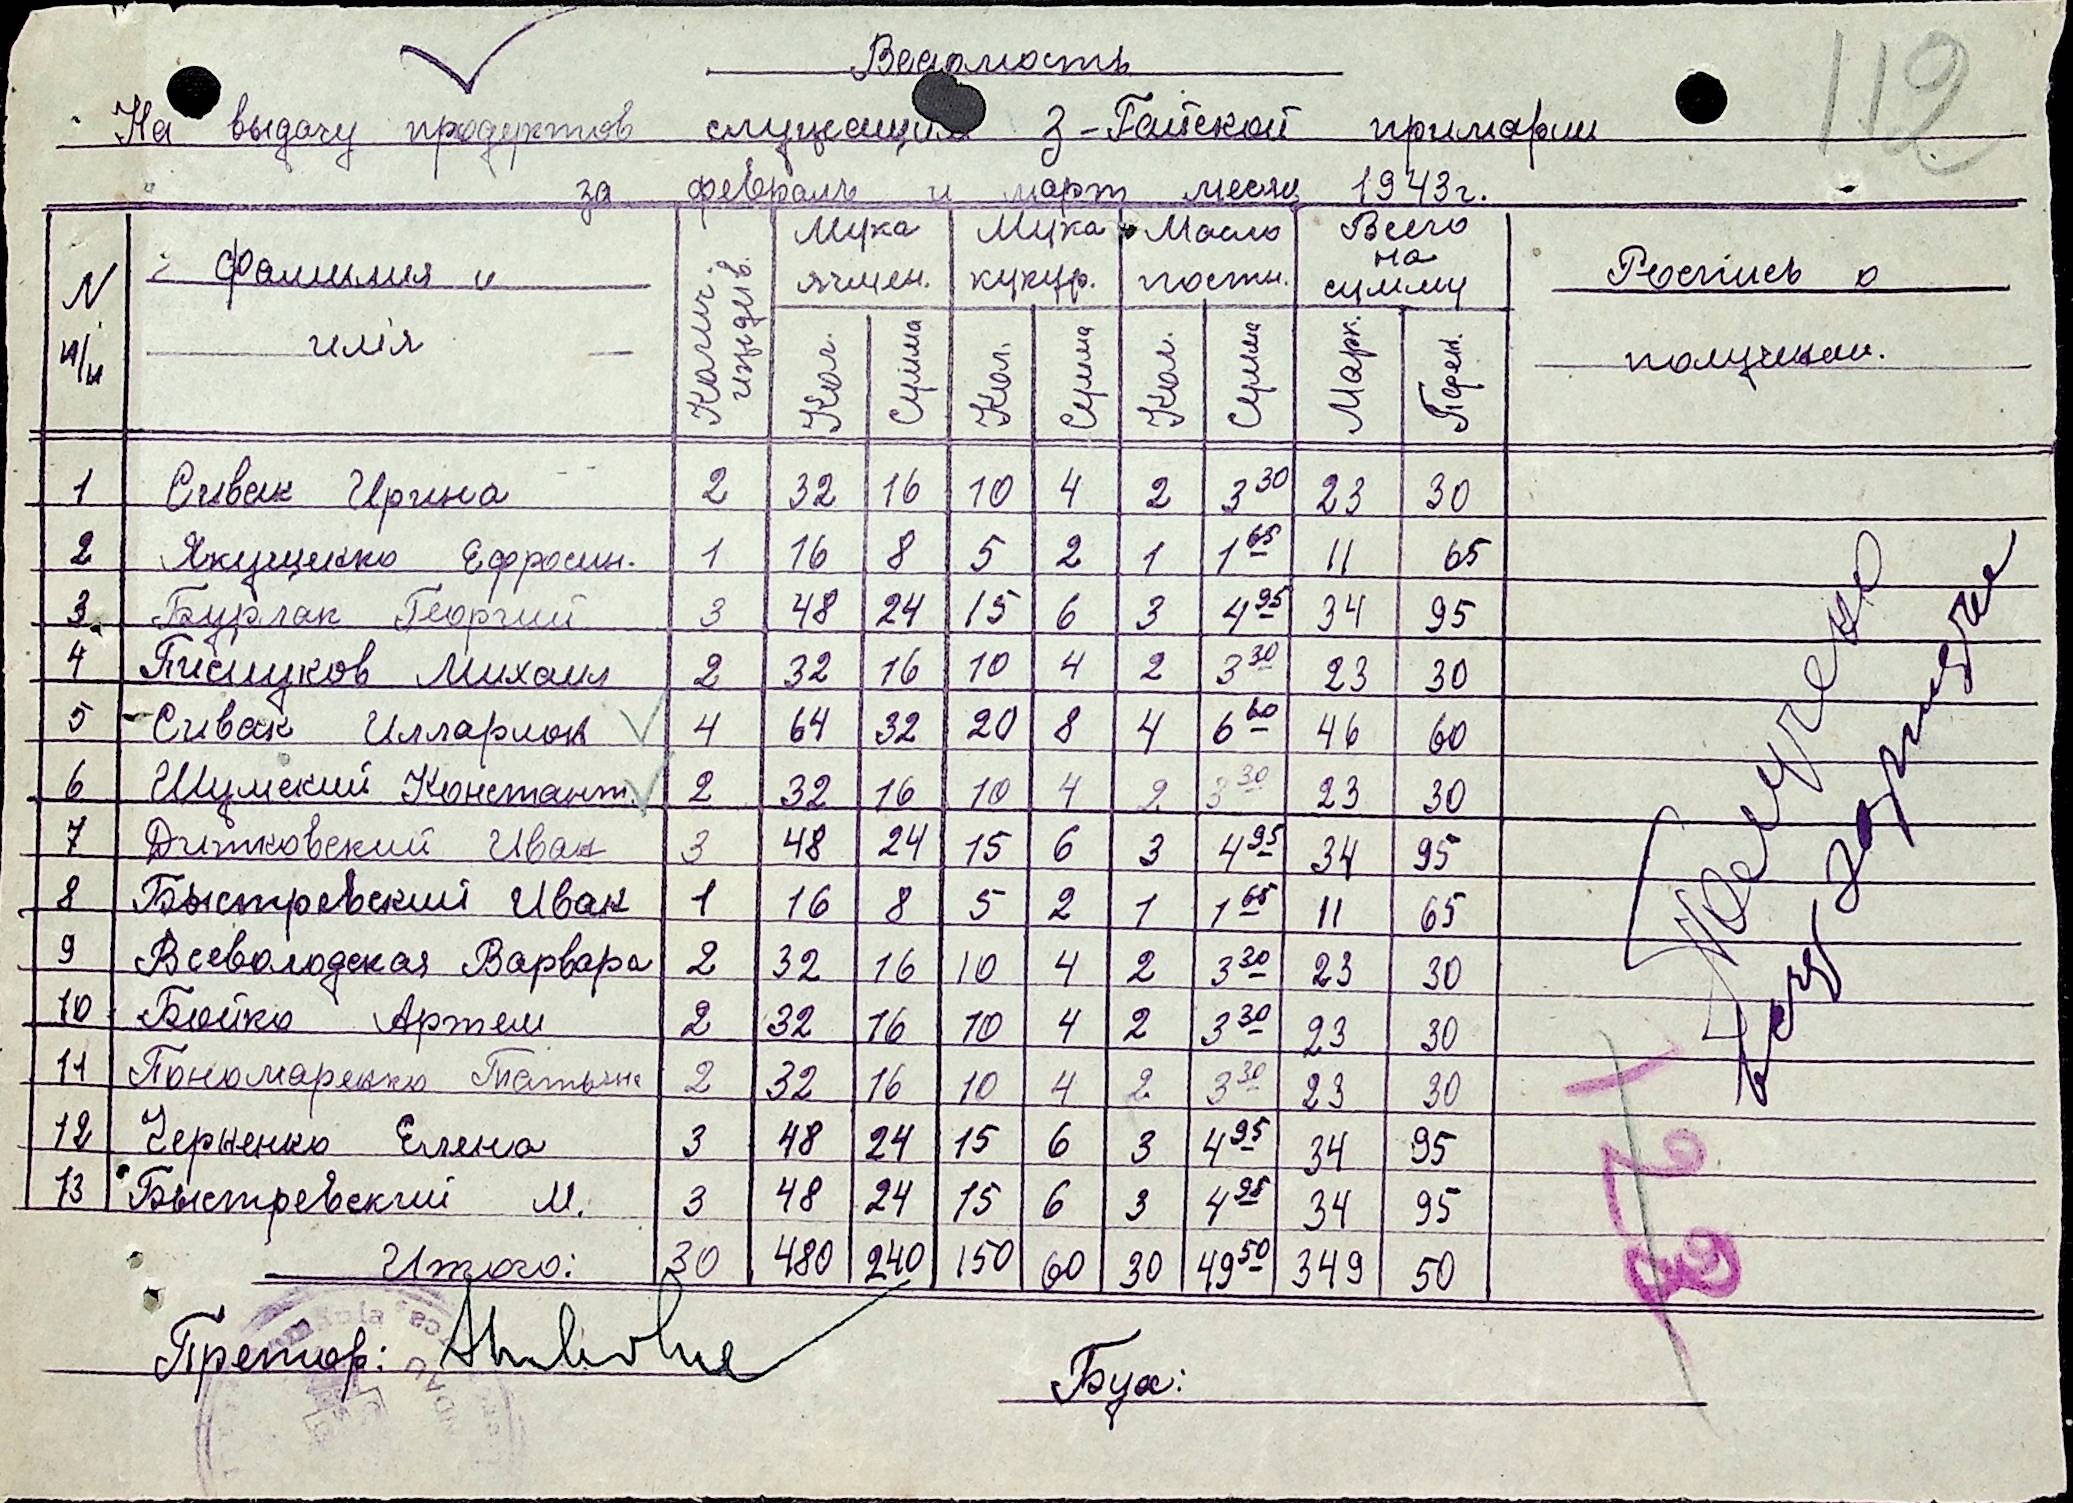 112
Ведомость
На выдачу продуктов служащим З-Гайской примарии
за февраль и март месяц 1943г.
N п/п Фамилия и имія Колич. иждив. Мука ячмен. Мука кукур. Масло постн. Всего на сумму Роспись о получении.
Кол. Сумма Кол. Сумма Кол. Сумма Марк. Пфен.
1 Сивак Ирина 2 32 16 10 4 2 3 30 23 30
2 Якущенко Ефросин. 1 16 8 5 2 1 1 65 11 65
3 Бурлак Георгий 3 48 24 15 6 3 4 95 34 95
4 Писчуков Михаил 2 32 16 10 4 2 3 30 23 30
5 Сивак Илларион 4 64 32 20 8 4 6 60 46 60
6 Шумский Констант. 2 32 16 10 4 2 3 30 23 30
7 Дитковский Иван 3 48 24 15 6 3 4 95 34 95
8 Быстревский Иван 1 16 8 5 2 1 1 65 11 65
9 Всеволодская Варвара 2 32 16 10 4 2 3 30 23 30
10 Бойко Артем 2 32 16 10 4 2 3 30 23 30
11 Пономаренко Татьяна 2 32 16 10 4 2 3 30 23 30
12 Черненко Елена 3 48 24 15 6 3 4 95 34 95
13 Быстревский М. 3 48 24 15 6 3 4 95 34 95
Итого: 30 480 240 150 60 30 49 50 349 50
Получено
Претор:
Бух: